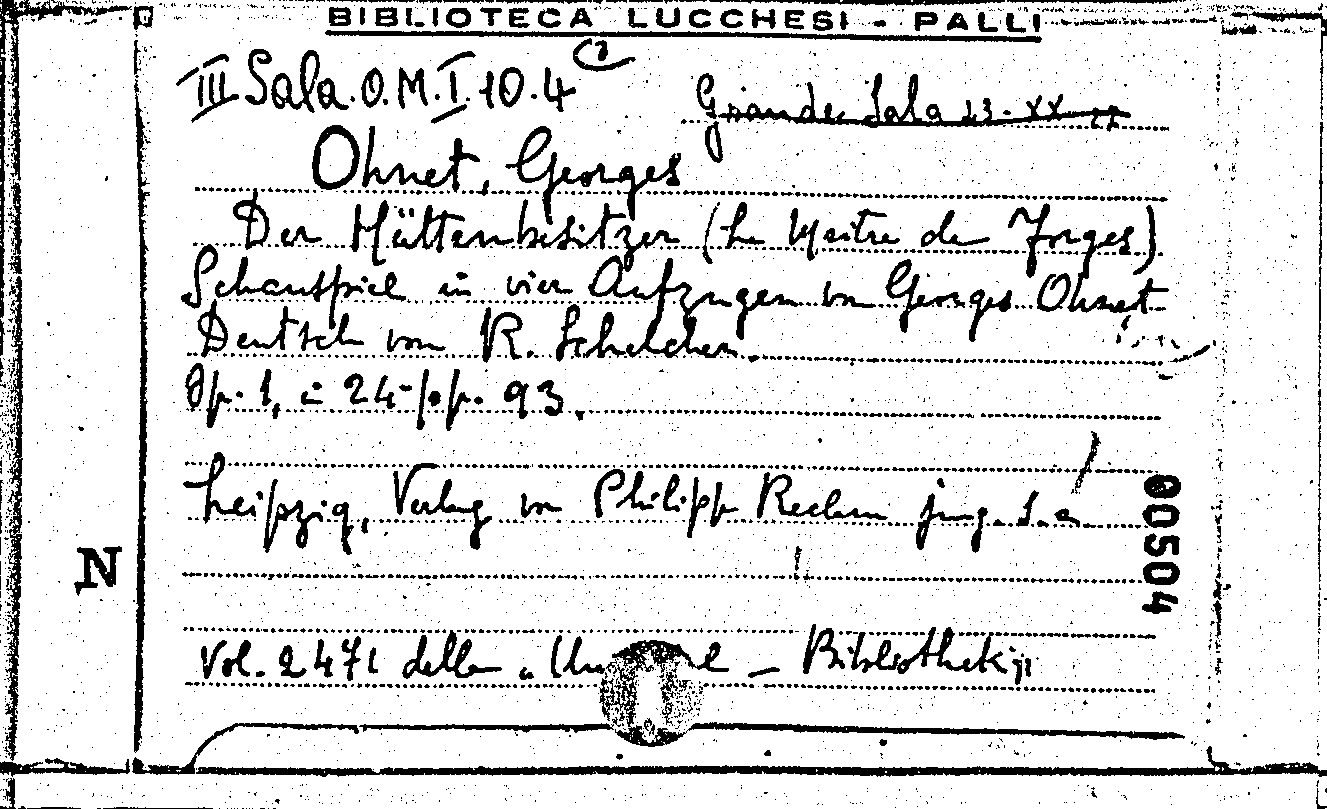 BIBLIOTECA LUCCHESI - PALLI
III Sala. O. M. I. 10. 4 (2
Grande Sala 23. XX
Ohnet, Georges
Der Hüttenbesitzer (Le Maitre de Forges)
Schauspiel in vier Aufzugen von Georges Ohnet
Deutsch von R. Schelcher.
Op. 1, in 24- pp. 93.
Leipzig, Verlag von Philipp Reclam jung. s. a.
00504
N
Vol. 2471 della „ - Bibliothek "